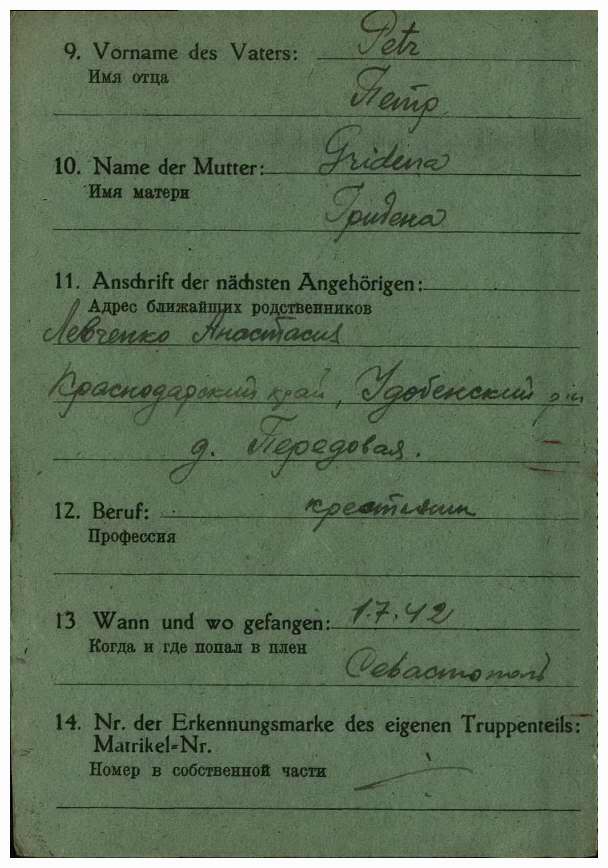 9. Vorname des Vaters: Petr
Имя отца
Петр
10. Name der Mutter: Gridena
Имя матери
Гридена
11. Anschrift der nächsten Angehörigen:
Адрес ближайщих родственников
Левченко Анастасия
Краснодарский край, Удобенский р-н
д. Передовая.
12. Beruf: крестянин
Профессия
13 Wann und wo gefangen: 1.7.42
Когда и где попал в плен
Севастополь
14. Nr. der Erkennungsmarke des eigenen Truppenteils:
Matrikel=Nr.
Номер в собственной части